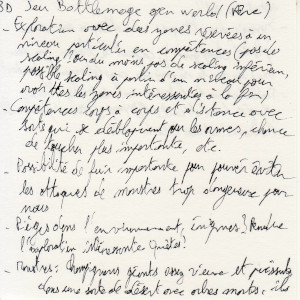 3D Jeu Battlemage open world (Rêve)
- Exploration avec des zones réservées à un
niveau particulier en compétences (pas de
scaling ou du moins pas de scaling inférieur,
possible scaling à partir d'un niveau pour
les zones intéressantes à la fin)
- Compétences corps à corps et distance avec
sorts qui se débloquent pour les armes, chance
de toucher plus importante, etc.
- Possibilité de fuir importante pour pouvoir éviter
les attaques de monstres trop dangereux pour
nous
- Pièges dans l'environnement, énigmes? Rendre
l'exploration intéressante Quêtes?
- Monstres: champignons géants vieux et
dans une sorte de désert avec arbres morts: ils